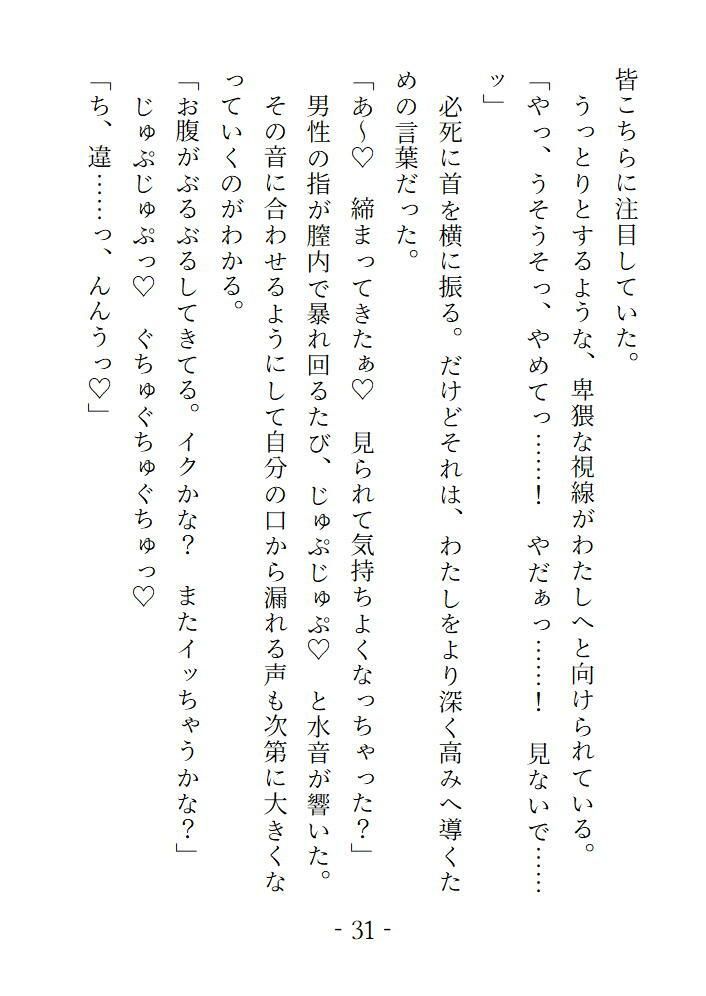 皆こちらに注目していた。
　うっとりとするような、卑猥な視線がわたしへと向けられている。
「やっ、うそうそっ、やめてっ……！　やだぁっ……！　見ないで……
ッ」
　必死に首を横に振る。だけどそれは、わたしをより深く高みへ導くた
めの言葉だった。
「あ～♡　締まってきたぁ♡　見られて気持ちよくなっちゃった？」
　男性の指が膣内で暴れ回るたび、じゅぷじゅぷ♡　と水音が響いた。
　その音に合わせるようにして自分の口から漏れる声も次第に大きくな
っていくのがわかる。
「お腹がぶるぶるしてきてる。イクかな？　またイッちゃうかな？」
　じゅぷじゅぷっ♡　ぐちゅぐちゅぐちゅっ♡
「ち、違……っ、んんうっ♡」
- 31 -